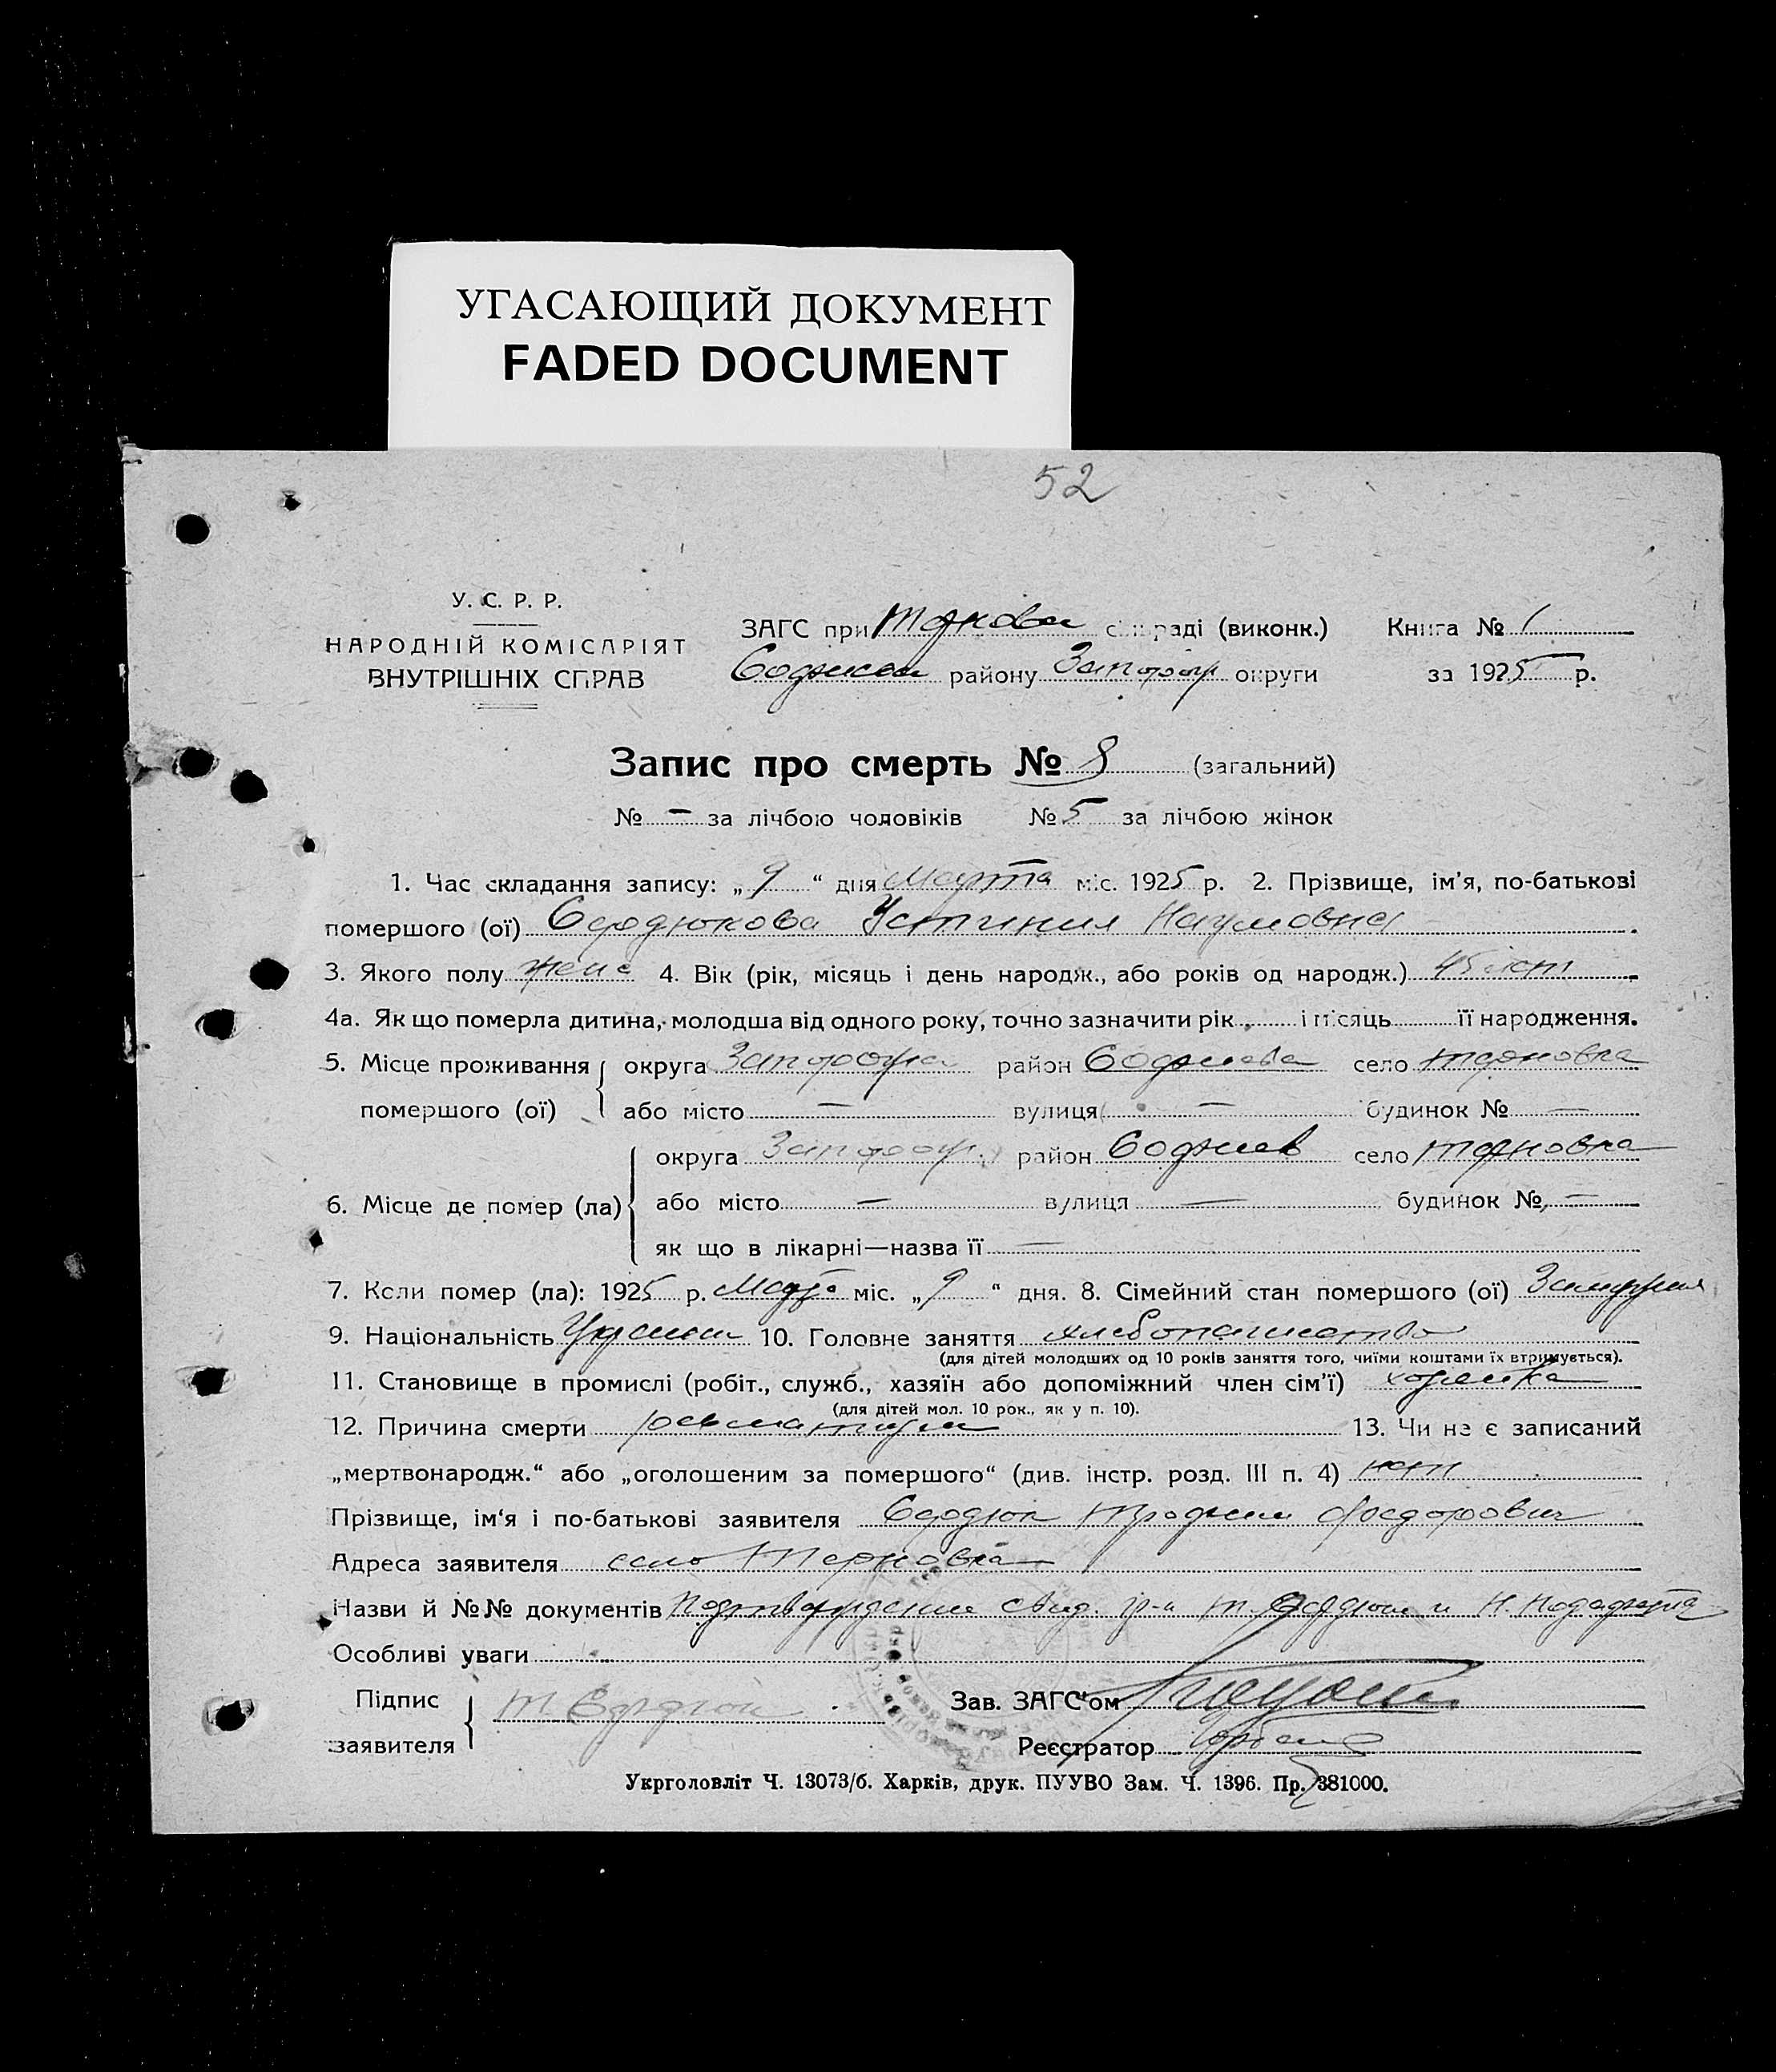 УГАСАЮЩИЙ ДОКУМЕНТ
FADED DOCUMENT
52
У. С. Р. Р.
НАРОДНІЙ КОМІСАРІЯТ
ВНУТРІШНІХ СПРАВ
ЗАГС при сільраді (виконк.)
району округи
Книга № 1
за 1925 р.
Запис про смерть № 8 (загальний)
№ – за лічбою чоловіків № 5 за лічбою жінок
1. Час складання запису: „ 9 “ дня Марта міс. 1925 р. 2. Прізвище, ім'я, по-батькові
помершого (ої) Сердюкова Устиния Наумовна .
3. Якого полу женс 4. Вік (рік, місяць і день народж., або років од народж.) 45 лет
4а. Як що померла дитина, молодша від одного року, точно зазначити рік і місяць її народження.
5. Місце проживання округа район село Терновка
помершого (ої) або місто — вулиця — будинок № —
округа район село Терновка
6. Місце де помер (ла) або місто — вулиця — будинок № —
як що в лікарні—назва її —
7. Коли помер (ла): 1925 р. Марта міс. „ 9 “ дня. 8. Сімейний стан помершого (ої)
9. Національність 10. Головне заняття хлебопашество
(для дітей молодших од 10 років заняття того, чиїми коштами їх втримується).
11. Становище в промислі (робіт., служб., хазяїн або допоміжний член сім'ї) хозяйка
(для дітей мол. 10 рок., як у п. 10).
12. Причина смерти ревматизм 13. Чи не є записаний
„мертвонародж.“ або „оголошеним за помершого“ (див. інстр. розд. III п. 4) нет
Прізвище, ім'я і по-батькові заявителя Сердюк Трофим Федорович
Адреса заявителя село Терновка
Назви й №№ документів свид. гр-н Т. Сердюк и Н.
Особливі уваги
Підпис
заявителя
Т Сердюк
Зав. ЗАГС'ом
Реєстратор
Укрголовліт Ч. 13073/б. Харків, друк. ПУУВО Зам. Ч. 1396. Пр. 381000.